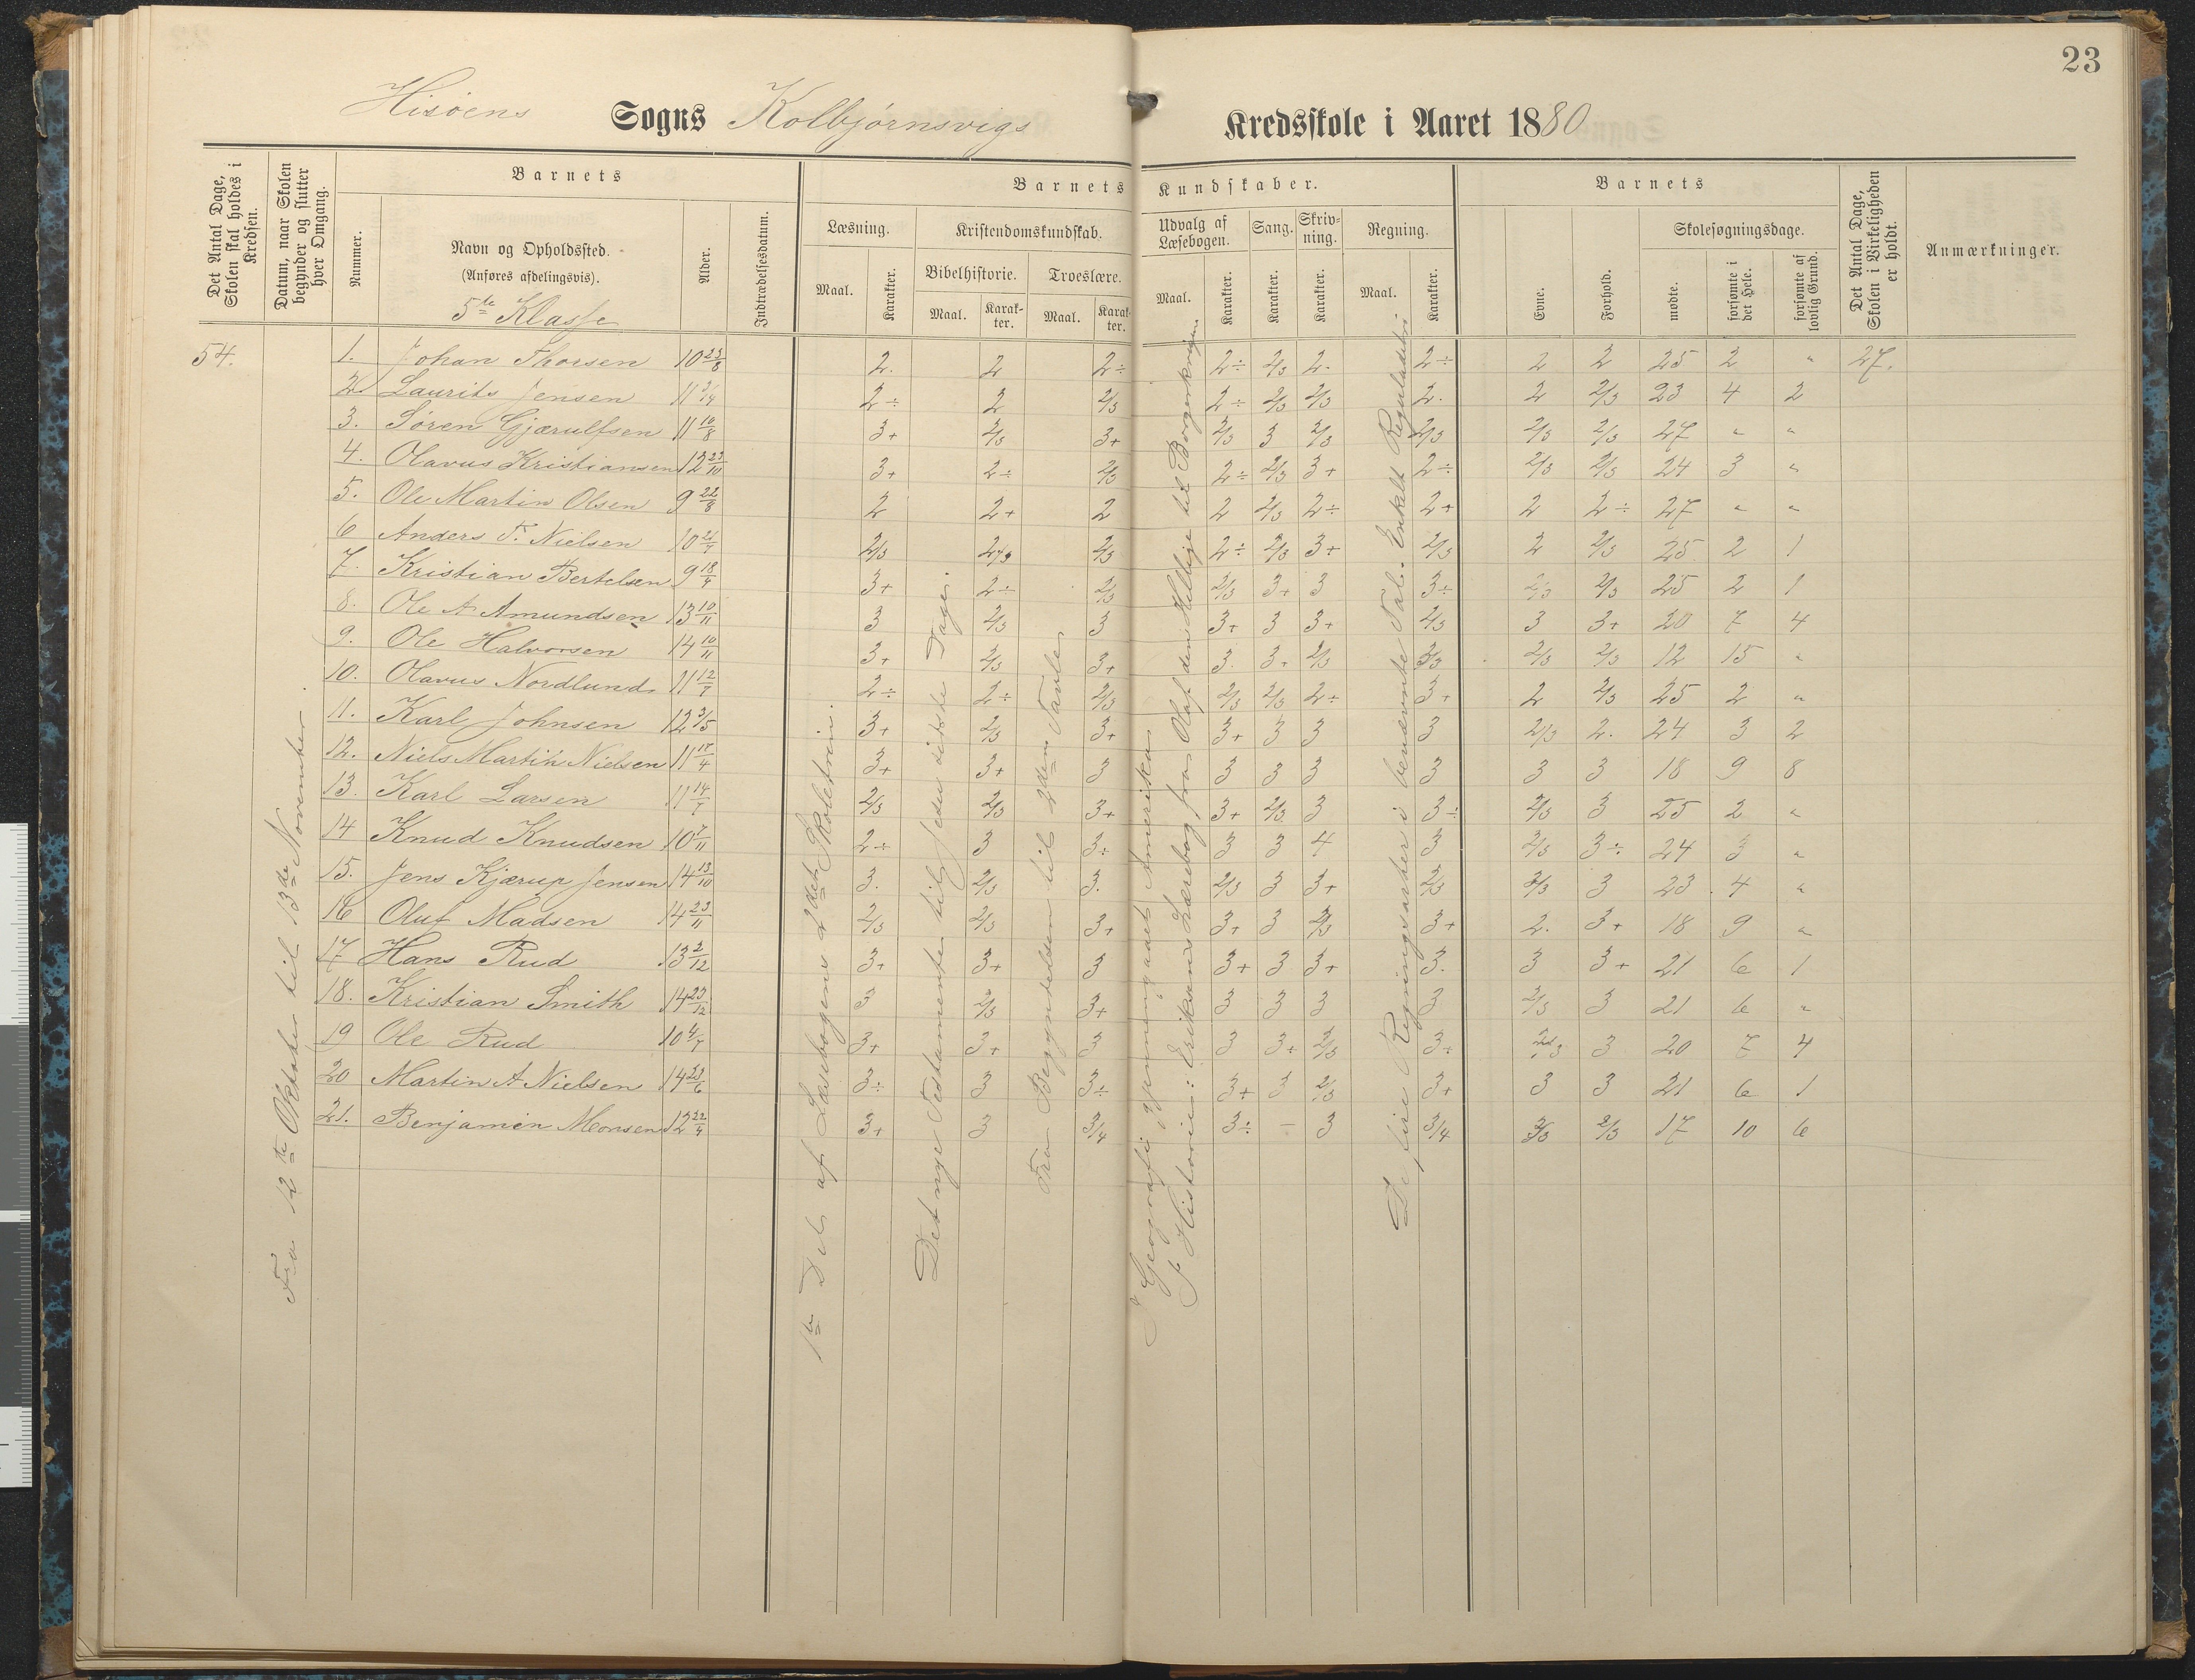 23
Hisöens Sogns Kolbjørnsvigs Kredsskole i Aaret 1880
Det Antal Dage, Skolen skal holdes i Kredsen.
Datum, naar Skolen begynder og slutter hver Omgang.
Barnets
Nummer.
Navn og Opholdssted.
(Anføres afdelingsvis).
5te Klasse
Alder.
Indtrædelsesdatum.
Barnets Kundskaber.
Læsning.
Maal. Karakter.
Kristendomskundskab.
Bibelhistorie. Troeslære.
Maal. Karakter. Maal. Karakter.
Udvalg af Læsebogen.
Maal. Karakter.
Sang. Karakter.
Skrivning. Karakter.
Regning.
Maal. Karakter.
Barnets
Evne. Forhold.
Skolesøgningsdage.
mødte. forsømte i det Hele. forsømte af lovlig Grund.
Det Antal Dage, Skolen i Virkeligheden er holdt.
Anmærkninger.
54.
Fra 12te Oktober til 13de November.
1ste Del af Læsebogens 2det Skoletrin.
Det nye Testamente til Jesu sidste Dage.
Fra Begyndelsen til 2den Tavle
I Geografi gjennemgaaet Amerika
I Historie: Eriksens Lærebog fra Olaf den Hellige til Borgerkrigen
De fire Regningsarter i benævnte Tal. Enkelt Reguladetri
1. Johan Thorsen 10 23/8 2. 2 2÷ 2÷ 2/3 2. 2÷ 2 2 25 2 " 27.
2. Laurits Jensen 11 2÷ 2 2/3 2÷ 2/3 2/3 2. 2 2/3 23 4 2
3. Søren Gjærulfsen 11 10/8 3+ 2/3 3+ 2/3 3 2/3 2/3 2/3 2/3 27 " "
4. Olavus Kristiansen 12 23/10 3+ 2÷ 2/3 2÷ 2/3 3+ 2÷ 2/3 2/3 24 3 "
5. Ole Martin Olsen 9 22/8 2 2+ 2 2 2/3 2÷ 2+ 2 2÷ 27 " "
6 Anders T. Nielsen 10 2/3 2/3 2/3 2÷ 2/3 3+ 2/3 2 2/3 25 2 1
7. Kristian Bertelsen 9 18/4 3+ 2÷ 2/3 2/3 3+ 3 3÷ 2/3 2/3 25 2 1
8. Ole A Amundsen 13 10/11 3 2/3 3 3+ 3 3+ 2/3 3 3+ 20 7 4
9. Ole Halvorsen 14 10/11 3+ 2/3 3+ 3. 3+ 2/3 2/3 2/3 2/3 12 15 "
10. Olavus Nordlund 11 12/7 2÷ 2÷ 2/3 2/3 2/3 2÷ 3+ 2 2/3 25 2 "
11. Karl Johnsen 12 3/5 3+ 2/3 3+ 3+ 3 3 3 2/3 2. 24 3 2
12. Niels Martin Nielsen 11 17/4 3+ 3+ 3 3 3 3 3 3 3 18 9 8
13. Karl Larsen 11 14/7 2/3 2/3 3+ 3+ 2/3 3 3÷ 2/3 3 25 2 "
14 Knud Knudsen 10 7/11 2÷ 3 3÷ 3 3 4 3 2/3 3÷ 24 3 "
15. Jens Kjærup Jensen 14 13/10 3. 2/3 3. 2/3 3 3+ 2/3 2/3 3 23 4 "
16 Oluf Madsen 14 23/11 2/3 2/3 3+ 3+ 3 2/3 3+ 2. 3+ 18 9 "
17 Hans Rud 13 2/12 3+ 3+ 3 3+ 3 3+ 3. 3 3+ 21 6 1
18. Kristian Smith 14 23/12 3 2/3 3+ 3 3 3 3 2/3 3 21 6 "
19 Ole Rud 10 4/7 3+ 3+ 3 3 3+ 2/3 3÷ 2/3 3 20 7 4
20 Martin A Nielsen 14 23/6 3÷ 3 3÷ 3+ 3 2/3 3+ 3 3 21 6 1
21. Benjamin Monsen 12 22/4 3+ 3 3/4 3÷ — 3 3/4 2/3 2/3 17 10 6